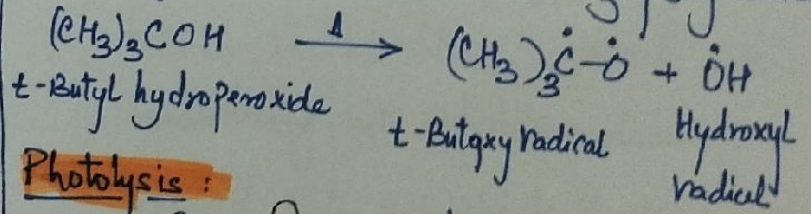 (CH₃)₃COH —Δ→ (CH₃)₃Ċ-Ȯ + ȮH
t-Butyl hydroperoxide
t-Butoxy radical
Hydroxyl
radical
Photolysis :